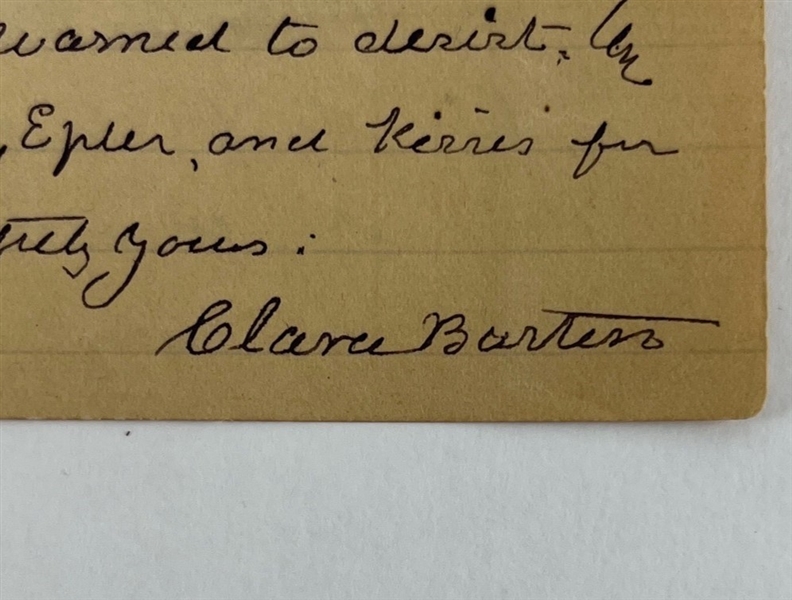 warned to desist.
, Epler, and kisses for
yours:
Clara Barton